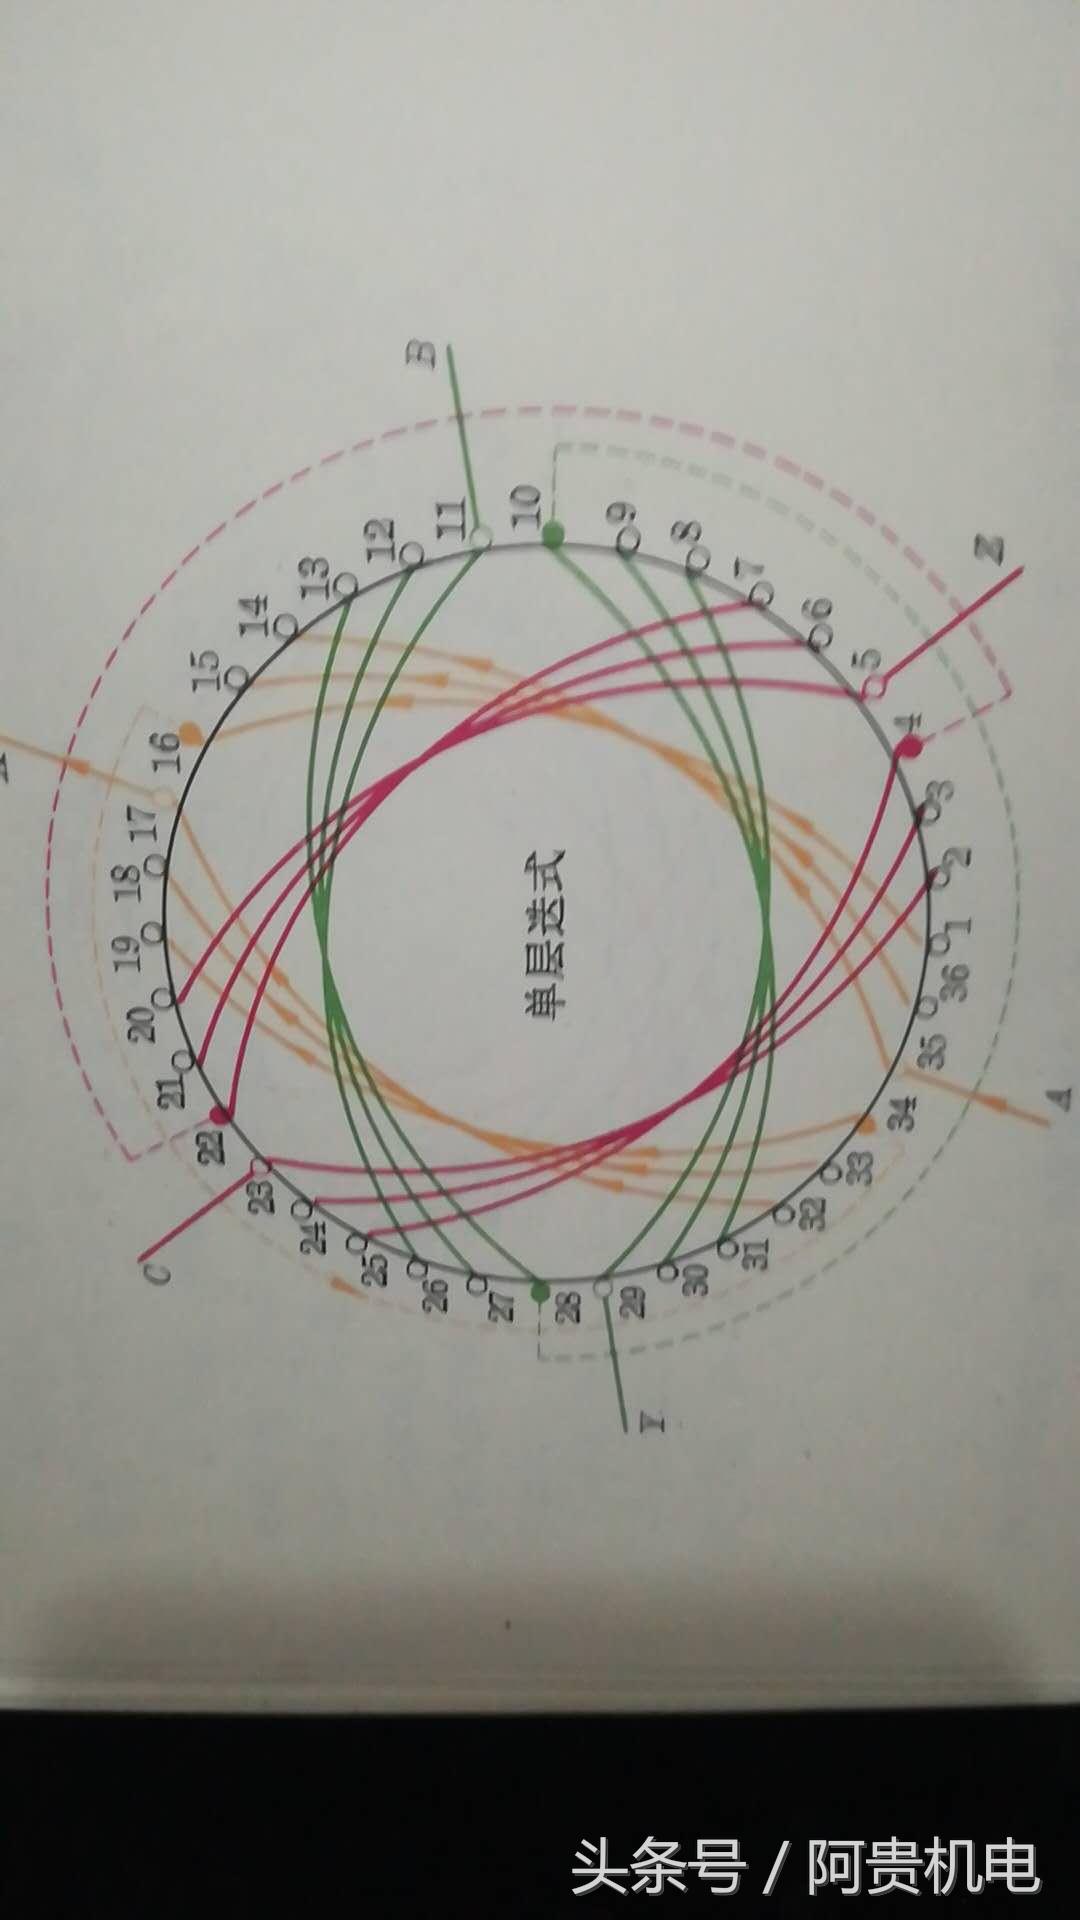 B
Z
A
Y
C
1
2
3
4
5
6
7
8
9
10
11
12
13
14
15
16
17
18
19
20
21
22
23
24
25
26
27
28
29
30
31
32
33
34
35
36
单层迭式
头条号 / 阿贵机电